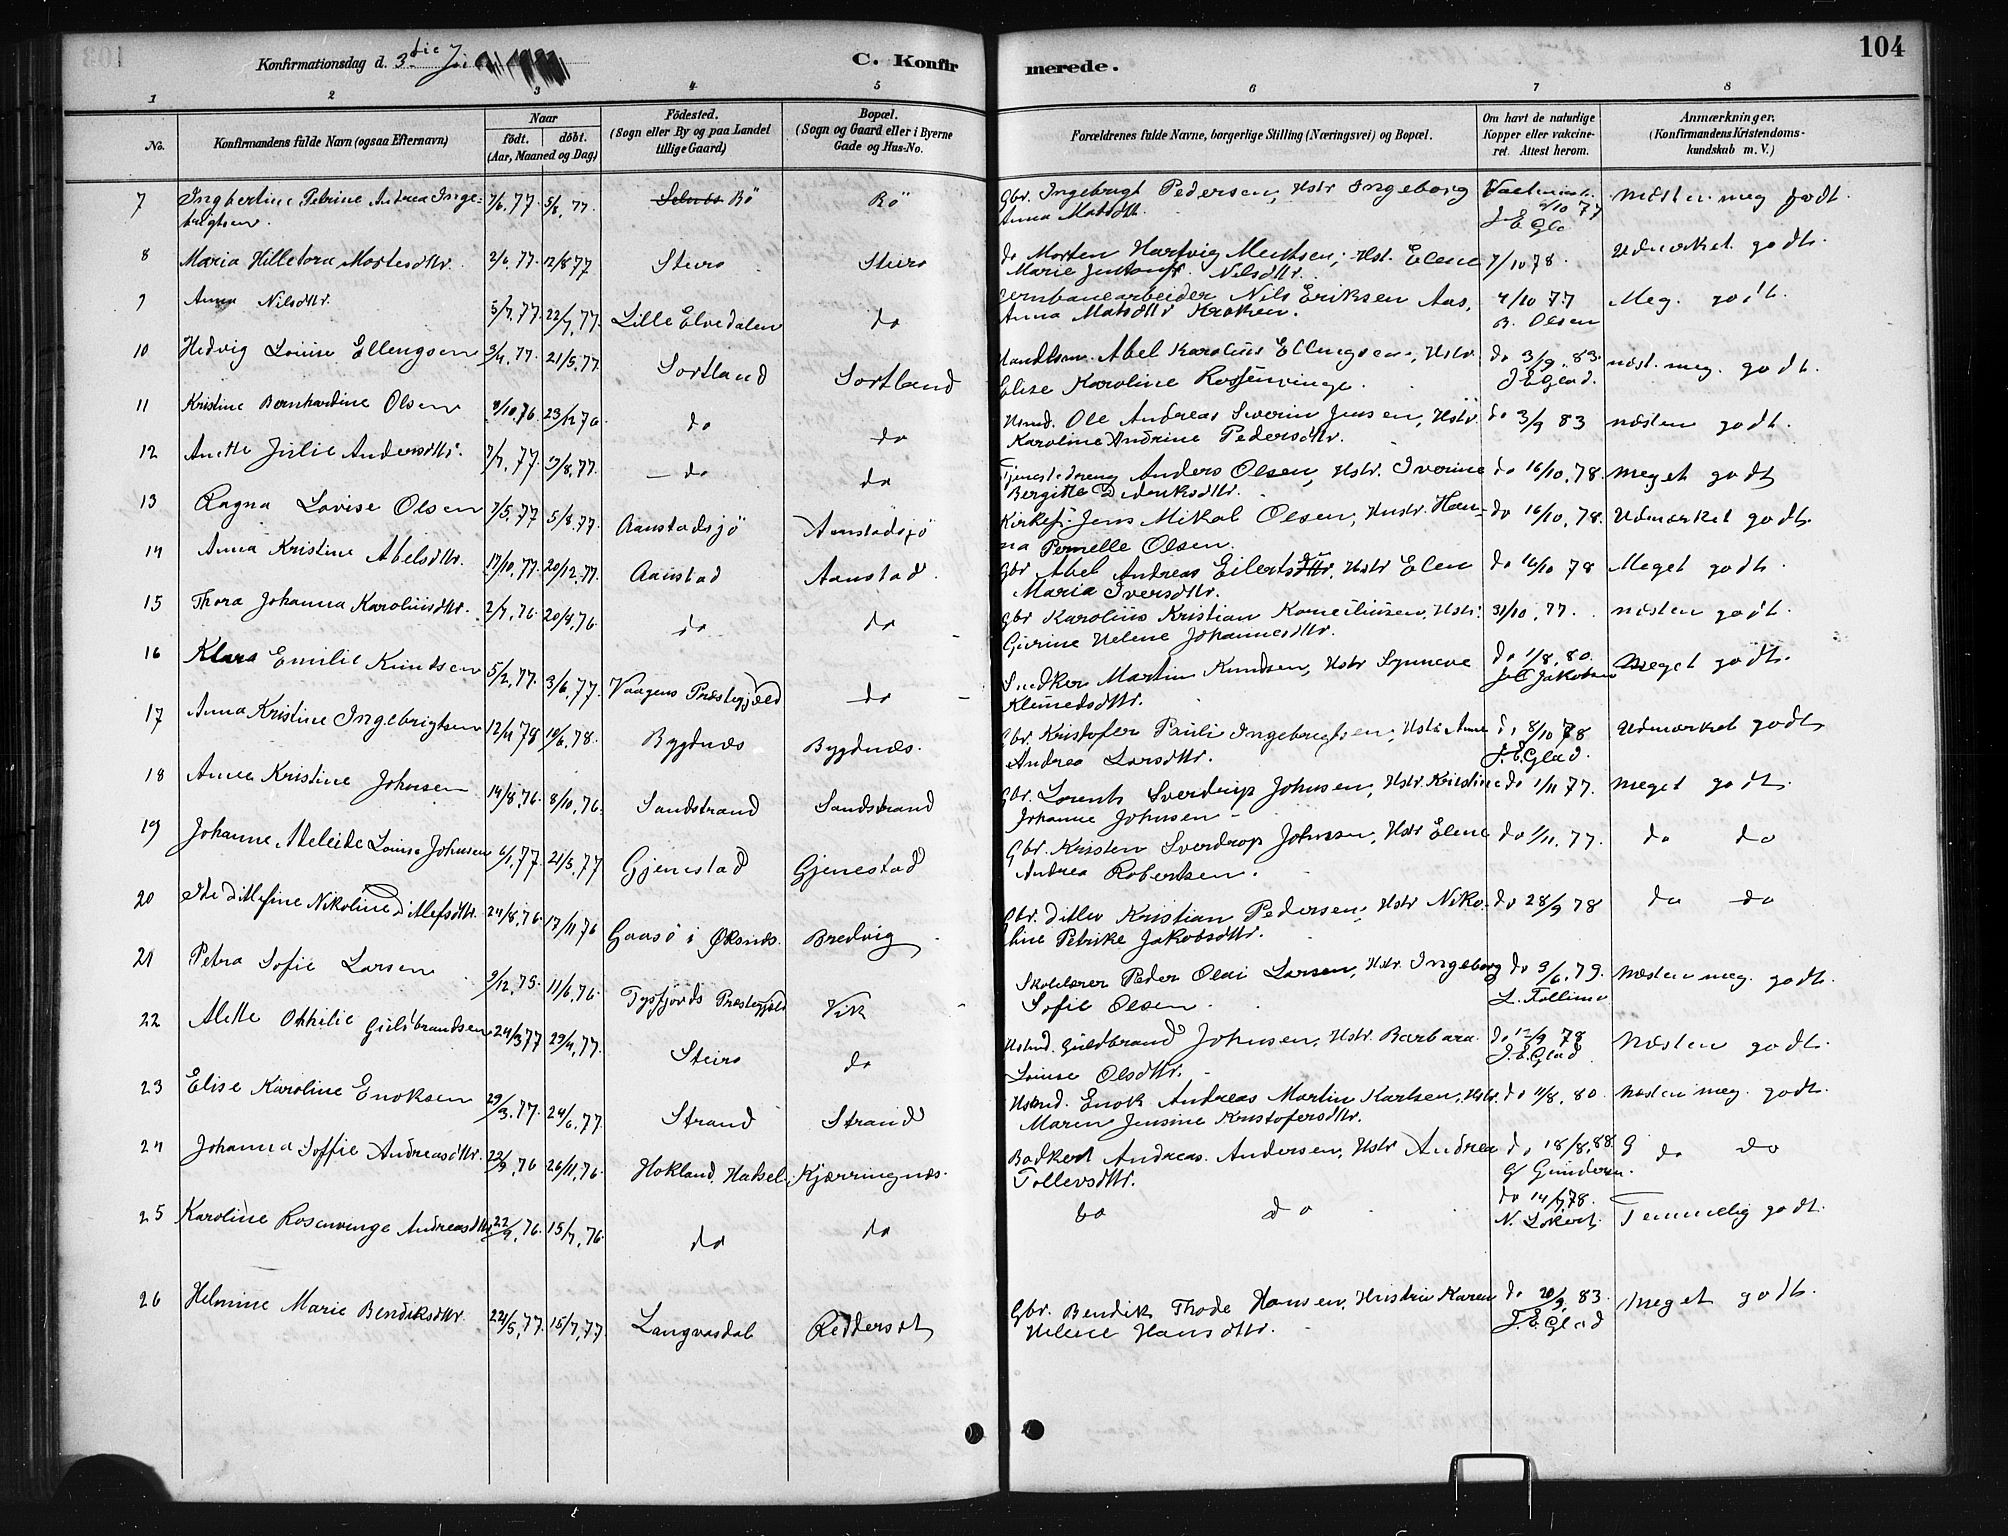 103
104
Konfirmationsdag d. 3die
C. Konfir
merede.
1 2 3 4 5 6 7 8
No.
Konfirmandens fulde Navn (ogsaa Efternavn)
Naar
födt. döbt.
(Aar, Maaned og Dag)
Födested.
(Sogn eller By og paa Landet
tillige Gaard)
Bopæl.
(Sogn og Gaard eller i Byerne
Gade og Hus-No.
Forældrenes fulde Navne, borgerlige Stilling (Næringsvei) og Bopæl.
Om havt de naturlige
Kopper eller vakcine-
ret. Attest herom.
Anmærkninger.
(Konfirmandens Kristendoms-
kundskab m. V.)
7 Ingbertine Petrine Andrea Inge- 7/6.77. 5/8.77. Bö Bö Gbr. Ingebrigt Pedersen, Hstr Ingeborg 2/10 77 næsten meg godt.
brigtsen. Anna Matsdtr. J E Gla
8 Maria Hilletora Mortesdtr. 2/6.77. 12/8 77 Steiro Steiro do Morten Hartvig, Hst. Elene 7/10 78. Udmærket godt.
Marie Nilsdtr.
9 Anna Nilsdtr. 5/7.77. 22/7.77. Lille Elvedalen do Jernbanearbeider Nils Eriksen Aas, 4/10 77 Meg. godt.
Anna Matsdtr Kroken. B. Olsen
10 Hedvig Louise Ellengsen 3/4.77. 21/5.77. Sortland Sortland Handlsm. Abel Karolius Ellingsen, Hstr do 3/9.83. næst. meg. godt.
Elise Karoline Rosenvinge. J E Glad.
11 Kristine Bernhardine Olsen 9/10.76 23/12 76 do do Hsmd. Ole Andreas Severin Jensen, Hstr do 3/9 83 næsten godt.
Karoline Andrine Pedersdtr.
12 Anette Julie Andersdtr. 7/7.77. 9/8.77. do do Tjenestedreng Anders Olsen, Hstr. Iverine do 16/10.78. meget godt
Bergitte Didriksdtr.
13 Ragna Lovise Olsen 7/5.77 5/8.77. Aanstadsjö Aanstadsjö Kirkes. Jens Mikal Olsen, Hustr. Han- do 16/10.78. Udmærket godt.
na Pernelle Olsen.
14 Anna Kristine Abelsdtr. 17/10.77. 20/12.77. Aanstad Aanstad. Gbr Abel Andreas Eilertsen, Hstr Elen do 16/10 78 Meget godt.
Maria Iversdtr.
15 Thora Johanna Karoliusdtr. 2/7.76. 20/8.76. do do Gbr Karolius Kristian Korneliusen, Hstr. 31/10.77. næsten godt.
Gurine Helene Johannesdtr.
16 Klara Emilie Knudsen 5/2.77. 3/6.77. Vaagens Præstegjæld do Snedker Martin Knudsen, Hstr Synneve do 1/8.80. Meget godt.
Klemedsdtr. J C Jakobsen
17 Anna Kristine Ingebrigtsen 12/4 78 10/6.78. Bygdnæs Bygdnæs. Gbr. Kristofer Pauli Ingebrigtsen, Hstr Anne do 8/10 78 Udmærket godt
Andrea Larsdtr. J.E.Glad.
18 Anna Kristine Johnsen 19/8.76. 8/10.76. Sandstrand Sandstrand Gbr. Lorents Sverdrup Johnsen, Hstr. Kristine do 1/11 77. meget godt.
Johanne Johnsen
19 Johanne Meleide Louise Johnsen 6/1.77 21/5.77 Gjenestad Gjenestad Gbr. Kristen Sverdrup Johnsen, Hstr Elene do 1/11.77. do do
Andrea Robertsen.
20 Ditlefine Nikoline Ditlefsdtr. 24/8.76. 17/11 76 Gaasö i Öksnæs. Bredvig Gbr. Ditlev Kristian Pedersen, Hstr Niko- do 28/9 78 do do
line Petrike Jakobsdtr.
21 Petra Sofie Larsen 9/12.75. 11/6.76. Tysfjords Præstegjæld Vik Skolelærer Peder Olai Larsen, Hstr. Ingeborg do 9/6.79. næsten meg. godt.
Sofie Olsen.
22 Alette Othilie Gulbrandsen 24/3 77 29/4.77. Steiro do Hsmd. Guldbrand Johnsen, Hstr. Barbara do 12/9 78 næsten godt.
Louise Olsdtr. J.E.Glad
23 Elise Karoline Enoksen 29/3.77. 24/6.77 Strand Strand Hsmd. Enok Andreas Martin Karlsen, Hstr. do 11/8.80. næsten meg. godt.
Maren Jensine Kristofersdtr.
24 Johanna Soffie Andreasdtr. 22/9.76 26/11.76. Hokland, Hadsel. Kjærringnæs. Bødker Andreas Andersen, Hstr Andrea do 18/8.88. do do
Tollevsdtr. G Gundersen.
25 Karoline Rosenvinge Andreasdtr 22/9.76. 15/7.76. do do do do do 14/7.78. Temmelig godt.
26 Helmine Marie Bendiksdtr. 22/5.77. 15/7.77 Langvasdal Reddersdt Gbr. Bendik Thode Hansen, Hustru Karen do 20/9.83. Meget godt.
Helene Hansdtr. J.E.Glad